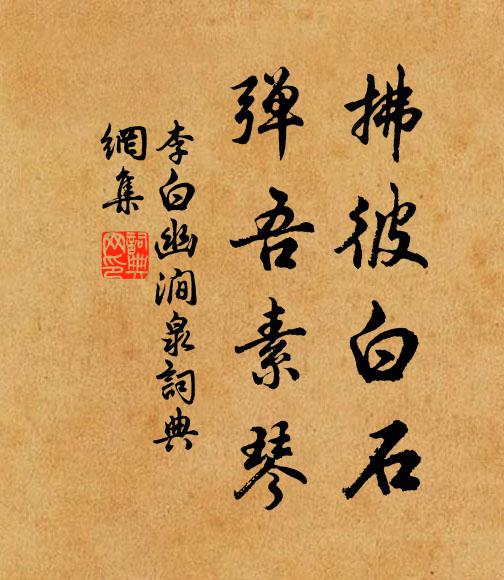 拂彼白石
弹吾素琴
李白幽涧泉詞典
網集
詞典
网印